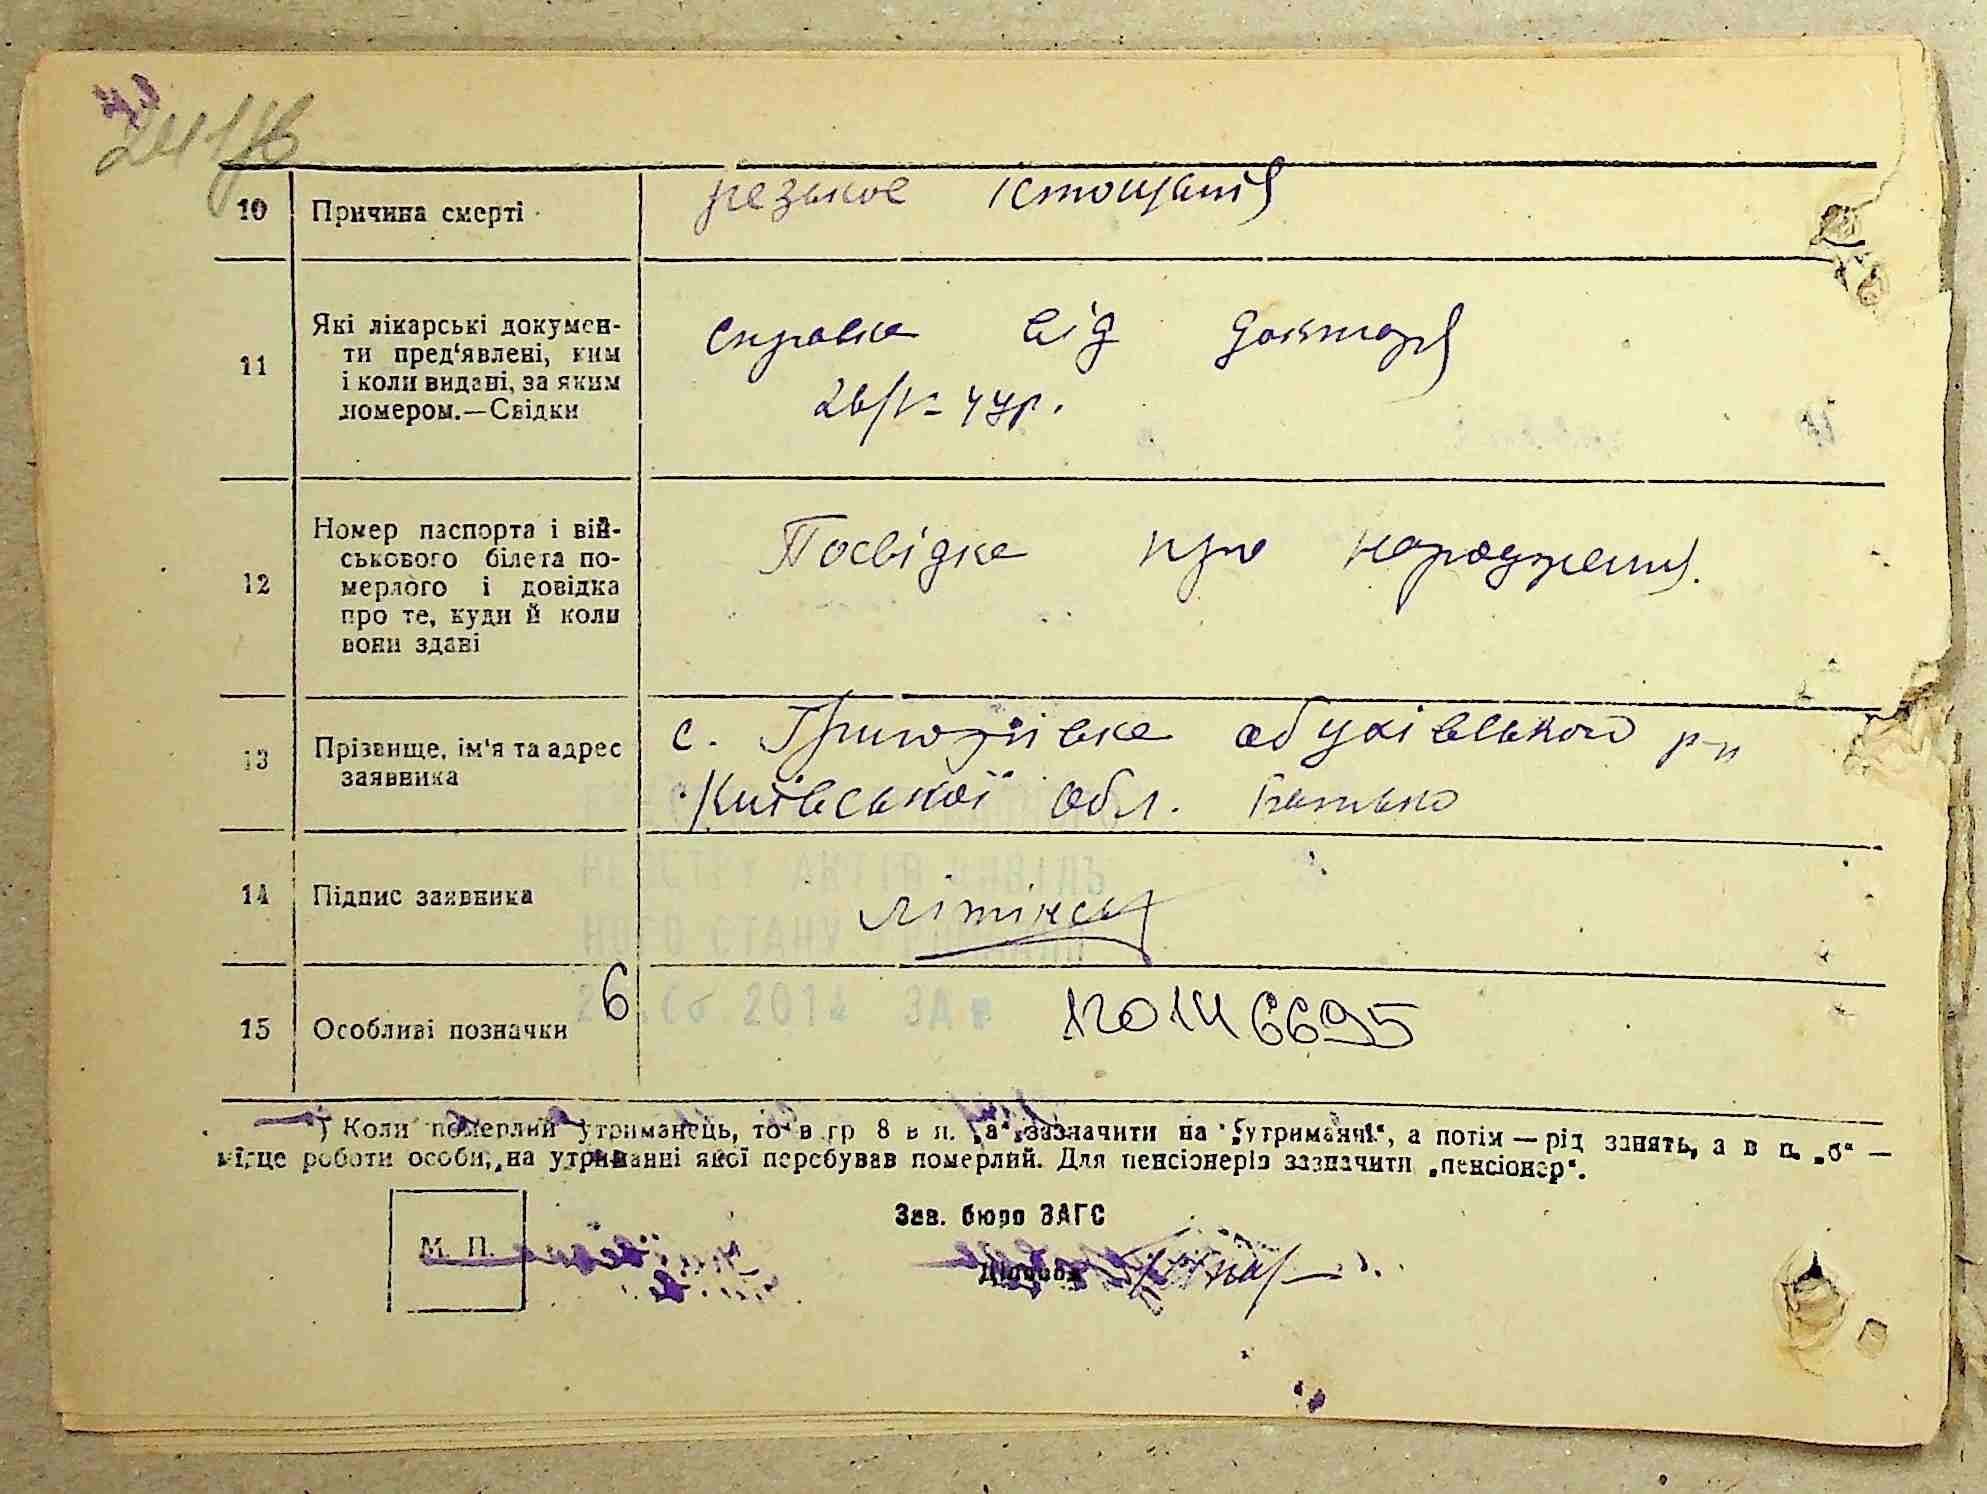 241
10 Причина смерті резькое істощанія
11 Які лікарські докумен-
ти пред'явлені, ким
і коли видані, за яким
номером.—Свідки
справка від доктора
26/V-44р.
12 Номер паспорта і вій-
ськового білета по-
мерлого і довідка
про те, куди й коли
вони здані
Посвідка про народження.
13 Прізвище, ім'я та адрес
заявника
с. Григорівка обухівського р-н
Київської обл. батько
14 Підпис заявника
РЕЄСТРУ АКТІВ ЦИВІЛЬ
НОГО СТАНУ ГРОМАДЯН
15 Особливі позначки 6
12014 6695
) Коли померлий утриманець, то в гр 8 в п. „а" зазначити на „утриманні", а потім — рід занять, а в п. „б" —
місце роботи особи, на утриманні якої перебував померлий. Для пенсіонерів зазначити „пенсіонер".
Зав. бюро ЗАГС
М. П.
Діловод